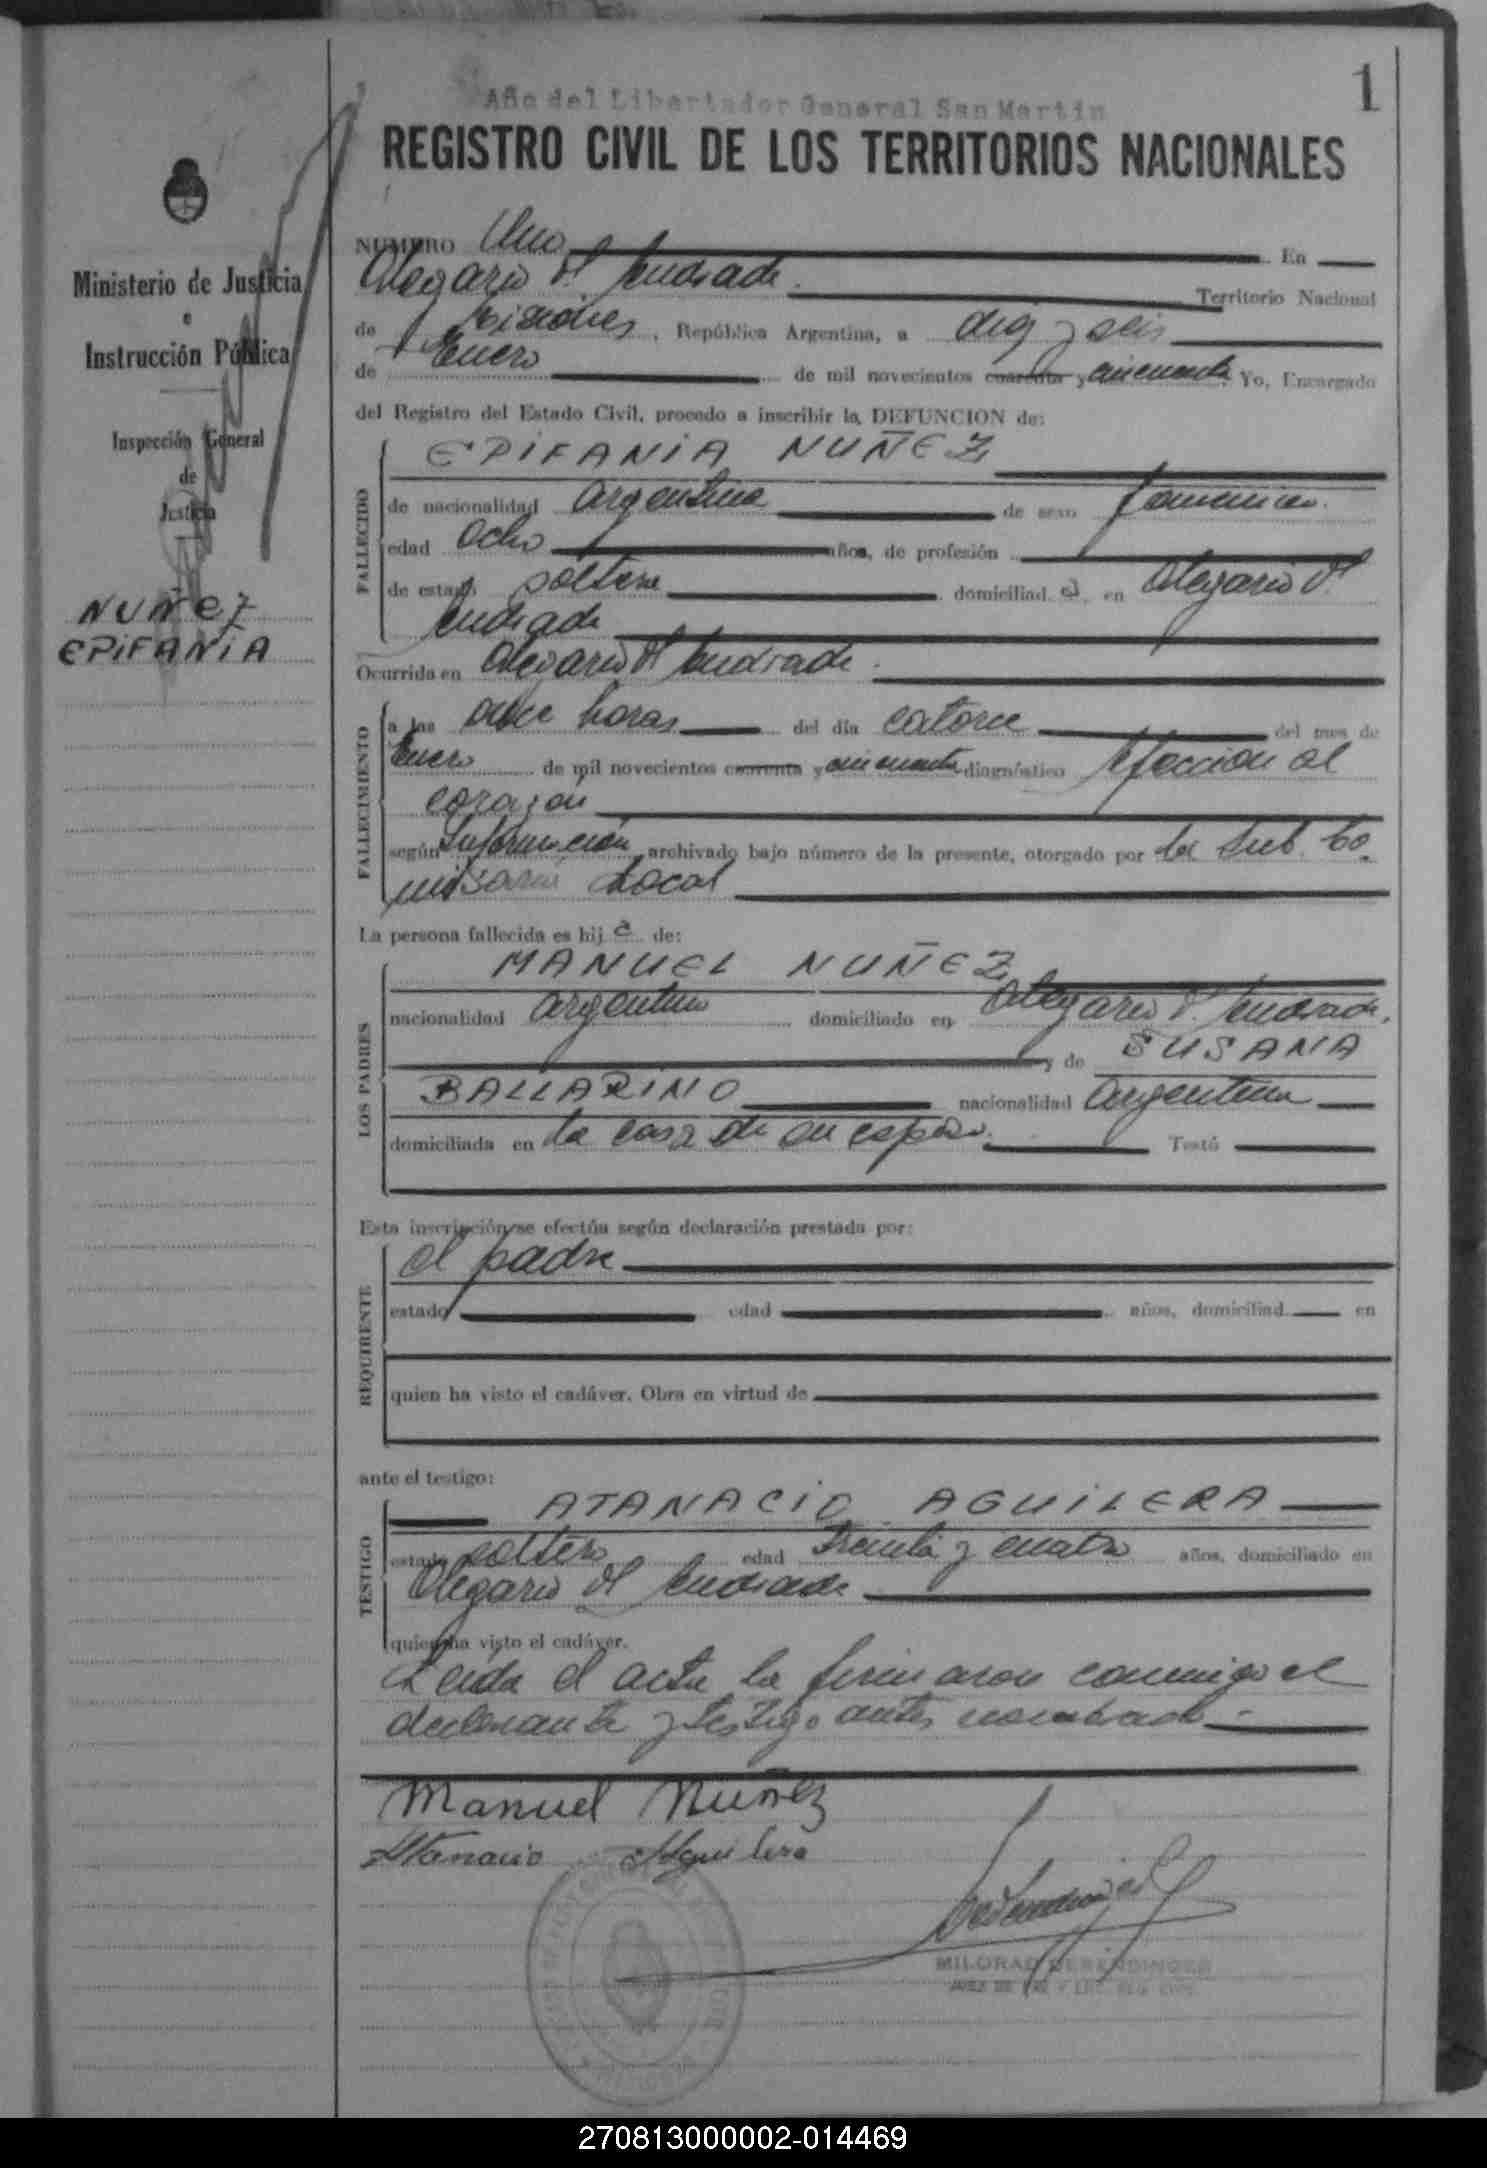 1
Año del Libertador General San Martín
REGISTRO CIVIL DE LOS TERRITORIOS NACIONALES
Ministerio de Justicia
e
Instrucción Pública
Inspección General
de
Justicia
NUÑEZ
EPIFANIA
NUMERO Uno En
Olegario V. Andrade. Territorio Nacional
de Misiones, República Argentina, a diez y seis
de Enero de mil novecientos cuarenta y cincuenta. Yo, Encargado
del Registro del Estado Civil, procedo a inscribir la DEFUNCION de:
FALLECIDO
EPIFANIA NUÑEZ
de nacionalidad argentina de sexo femenino.
edad Ocho años, de profesión
de estado soltera domiciliad a en Olegario V.
Andrade
Ocurrida en Olegario V. Andrade.
FALLECIMIENTO
a las horas del día catorce del mes de
Enero de mil novecientos cuarenta y cincuenta diagnóstico Afeccion al
corazón
según Información archivado bajo número de la presente, otorgado por la Sub. Co
misaria Local
La persona fallecida es hij a de:
LOS PADRES
MANUEL NUÑEZ
nacionalidad argentino domiciliado en Olegario V. Andrade.
y de SUSANA
BALLARINO nacionalidad argentina
domiciliada en la casa de su esposo. Testó
Esta inscripción se efectúa según declaración prestada por:
REQUIRENTE
el padre
estado edad años, domiciliad en
quien ha visto el cadáver. Obra en virtud de
ante el testigo:
TESTIGO
ATANACIO AGUILERA
estado soltero edad Treinta y cuatro años, domiciliado en
Olegario V. Andrade
quien ha visto el cadáver.
Leída el acta la firmaron conmigo el
declarante y testigo antes nombrado.-
Manuel Nuñez
Atanacio Aguilera
MILORAD DERENDINGER
JUEZ DE PAZ Y ENC. REG. CIVIL
270813000002-014469